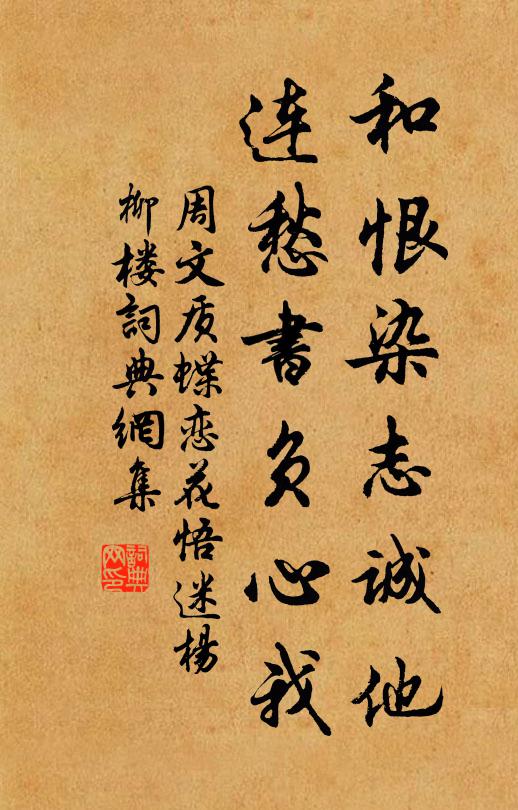 和恨染志诚他
连愁书负心我
周文质蝶恋花悟迷杨
柳楼词典网集
詞典
网印